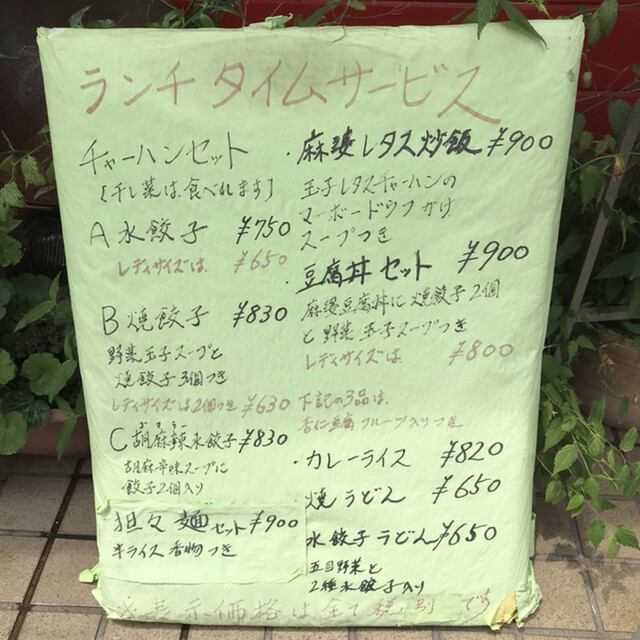 ランチタイムサービス
チャーハンセット
A 水餃子 ¥750
レディサイズは ¥650
B 焼餃子 ¥830
野菜玉子スープと
焼餃子3個つき
レディサイズは2個つき ¥630
C 胡麻辣水餃子 ¥830
胡麻辛味スープに
餃子2個入り
担々麺セット ¥900
半ライス 香物つき
・麻婆レタス炒飯 ¥900
玉子レタスチャーハンの
マーボードウフかけ
スープつき
・豆腐丼セット ¥900
麻婆豆腐丼に焼餃子2個
と野菜玉子スープつき
レディサイズは ¥800
下記の3品は、
杏仁豆腐フルーツ入りつき
・カレーライス ¥820
焼うどん ¥650
水餃子うどん ¥650
五目野菜と
2種水餃子入り
表示価格は全て税別です